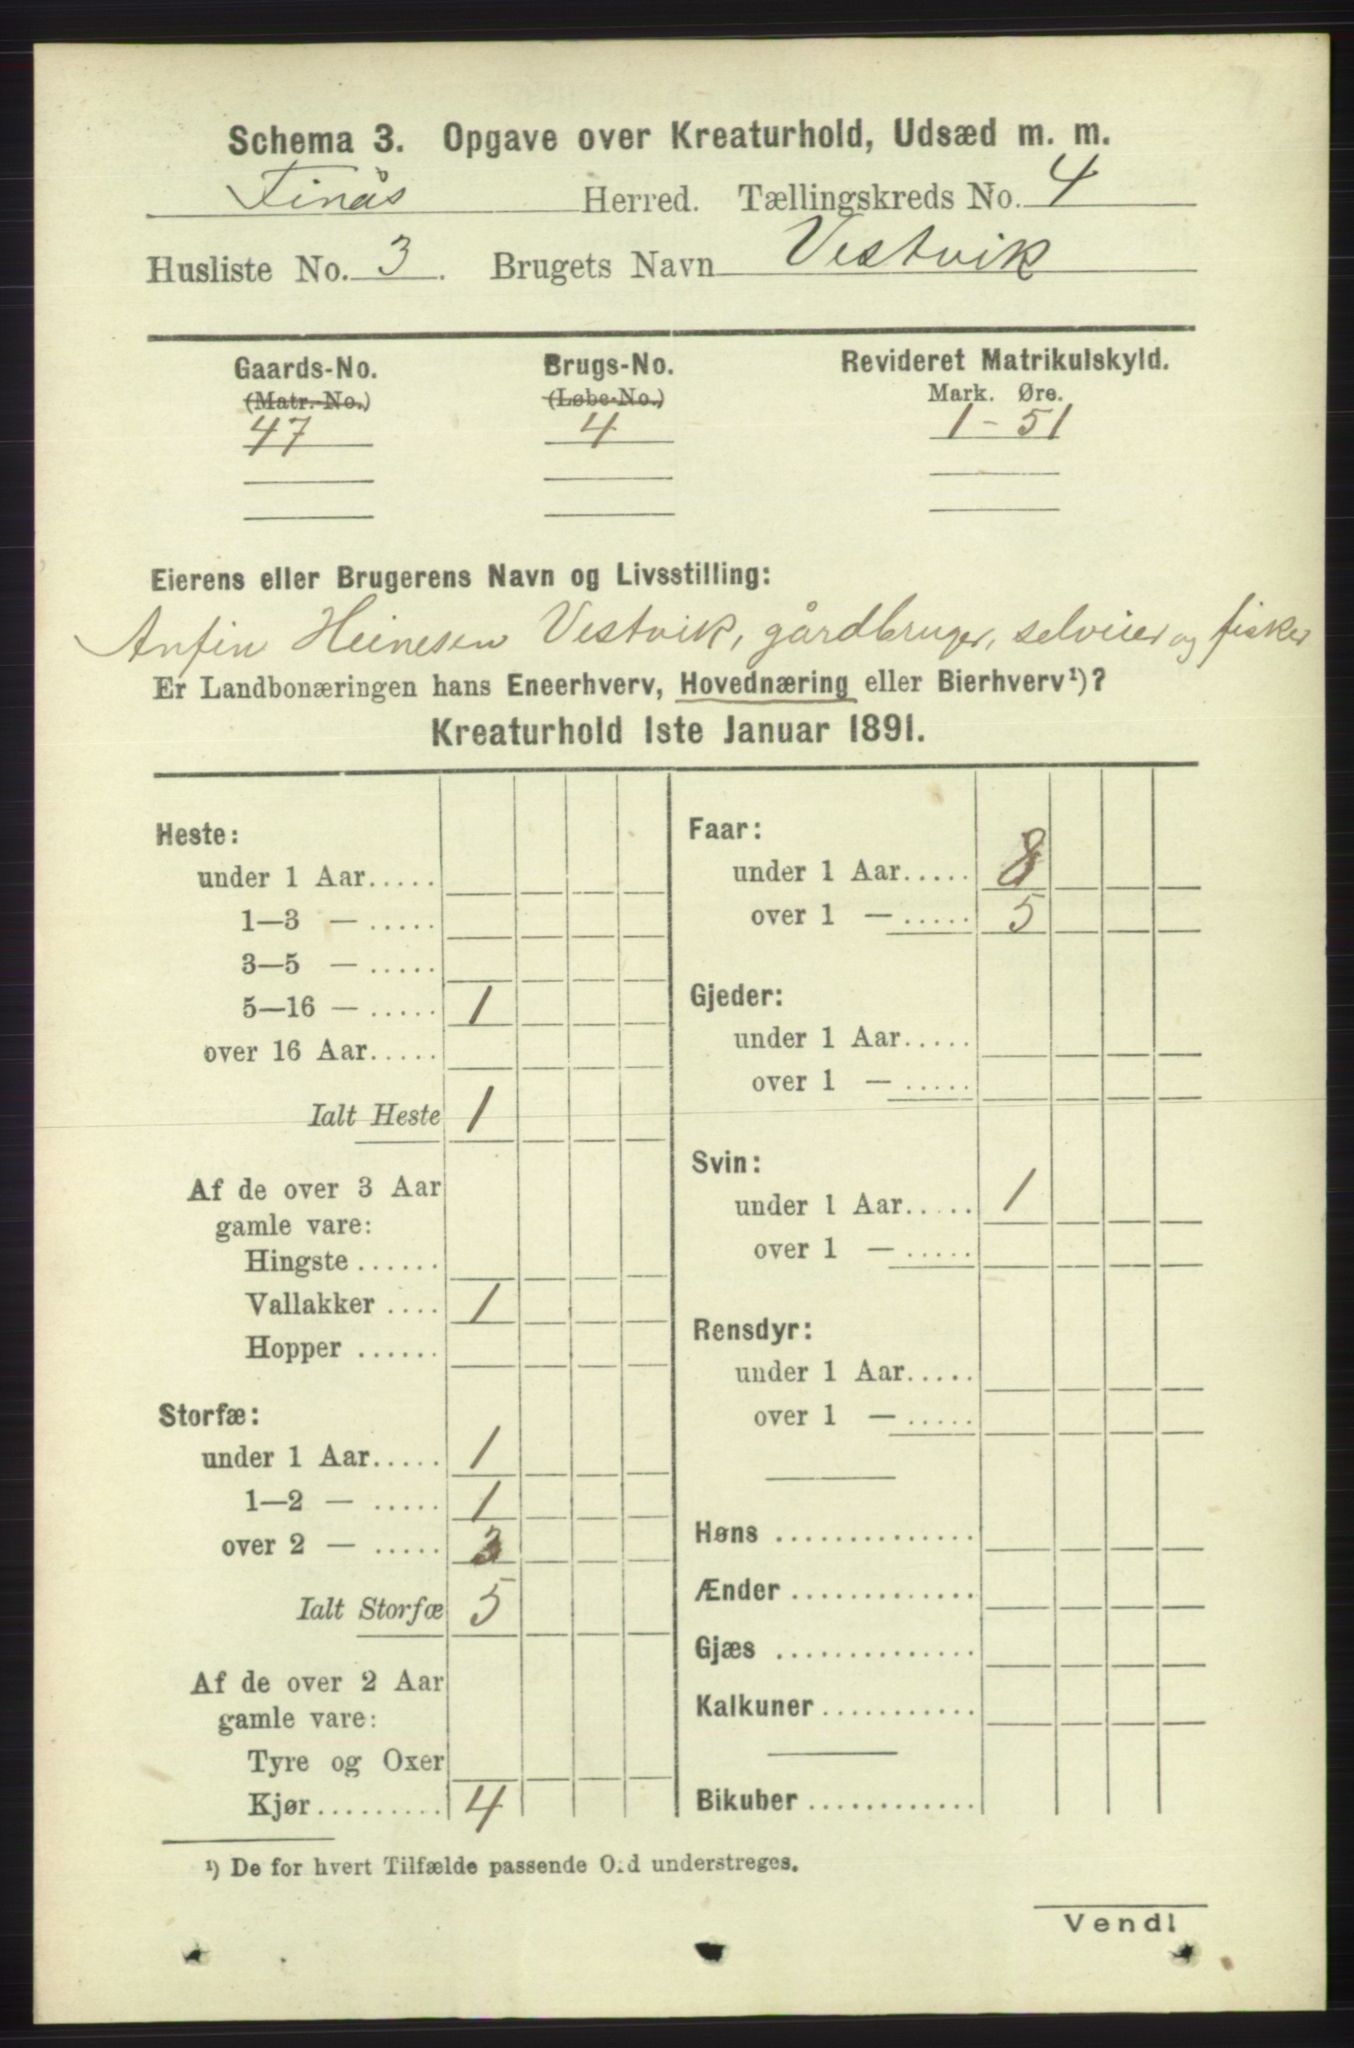 Schema 3. Opgave over Kreaturhold, Udsæd m. m.
Finås Herred. Tællingskreds No. 4
Husliste No. 3. Brugets Navn Vestvik
Gaards-No. Brugs-No. Revideret Matrikulskyld.
(Matr.-No.) (Løbe-No.) Mark. Øre.
47 4 1 - 51
Eierens eller Brugerens Navn og Livsstilling:
Anfin Heinesen Vestvik, gårdbruger, selveier og fisker
Er Landbonæringen hans Eneerhverv, Hovednæring eller Bierhverv¹)?
Kreaturhold 1ste Januar 1891.
Heste:
under 1 Aar.....
1—3 — .....
3—5 — .....
5—16 — ..... 1
over 16 Aar.....
Ialt Heste 1
Af de over 3 Aar
gamle vare:
Hingste ......
Vallakker .... 1
Hopper ......
Storfæ:
under 1 Aar..... 1
1—2 — ..... 1
over 2 — ..... 3
Ialt Storfæ 5
Af de over 2 Aar
gamle vare:
Tyre og Oxer
Kjør......... 4
Faar:
under 1 Aar..... 8
over 1 — ..... 5
Gjeder:
under 1 Aar.....
over 1 — .....
Svin:
under 1 Aar..... 1
over 1 — .....
Rensdyr:
under 1 Aar.....
over 1 — .....
Høns ..............
Ænder .............
Gjæs ..............
Kalkuner ...........
Bikuber ............
¹) De for hvert Tilfælde passende Ord understreges.
Vend!